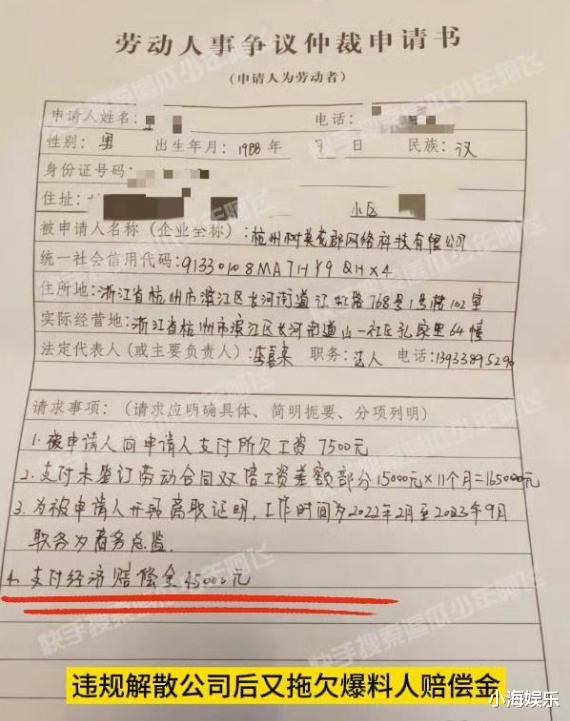 劳动人事争议仲裁申请书
（申请人为劳动者）
申请人姓名： 电话：
性别：男 出生年月：1988年 月 日 民族：汉
身份证号码：
住址： 小区
被申请人名称（企业全称）：杭州树英老郡网络科技有限公司
统一社会信用代码：91330108MA7HY9QHX4
住所地：浙江省杭州市滨江区长河街道江虹路768号1号楼102室
实际经营地：浙江省杭州市滨江区长河街道山一社区孔家里64幢
法定代表人（或主要负责人）： 职务：法人 电话：
请求事项：（请求应明确具体、简明扼要、分项列明）
1. 被申请人向申请人支付所欠工资 7500元
2. 支付未签订劳动合同双倍工资差额部分15000元×11个月=165000元
3. 为被申请人开具离职证明，工作时间为2022年2月至2023年9月
职务为商务总监.
4. 支付经济赔偿金45000元
快手搜索追瓜少年阿飞
违规解散公司后又拖欠爆料人赔偿金
小海娱乐